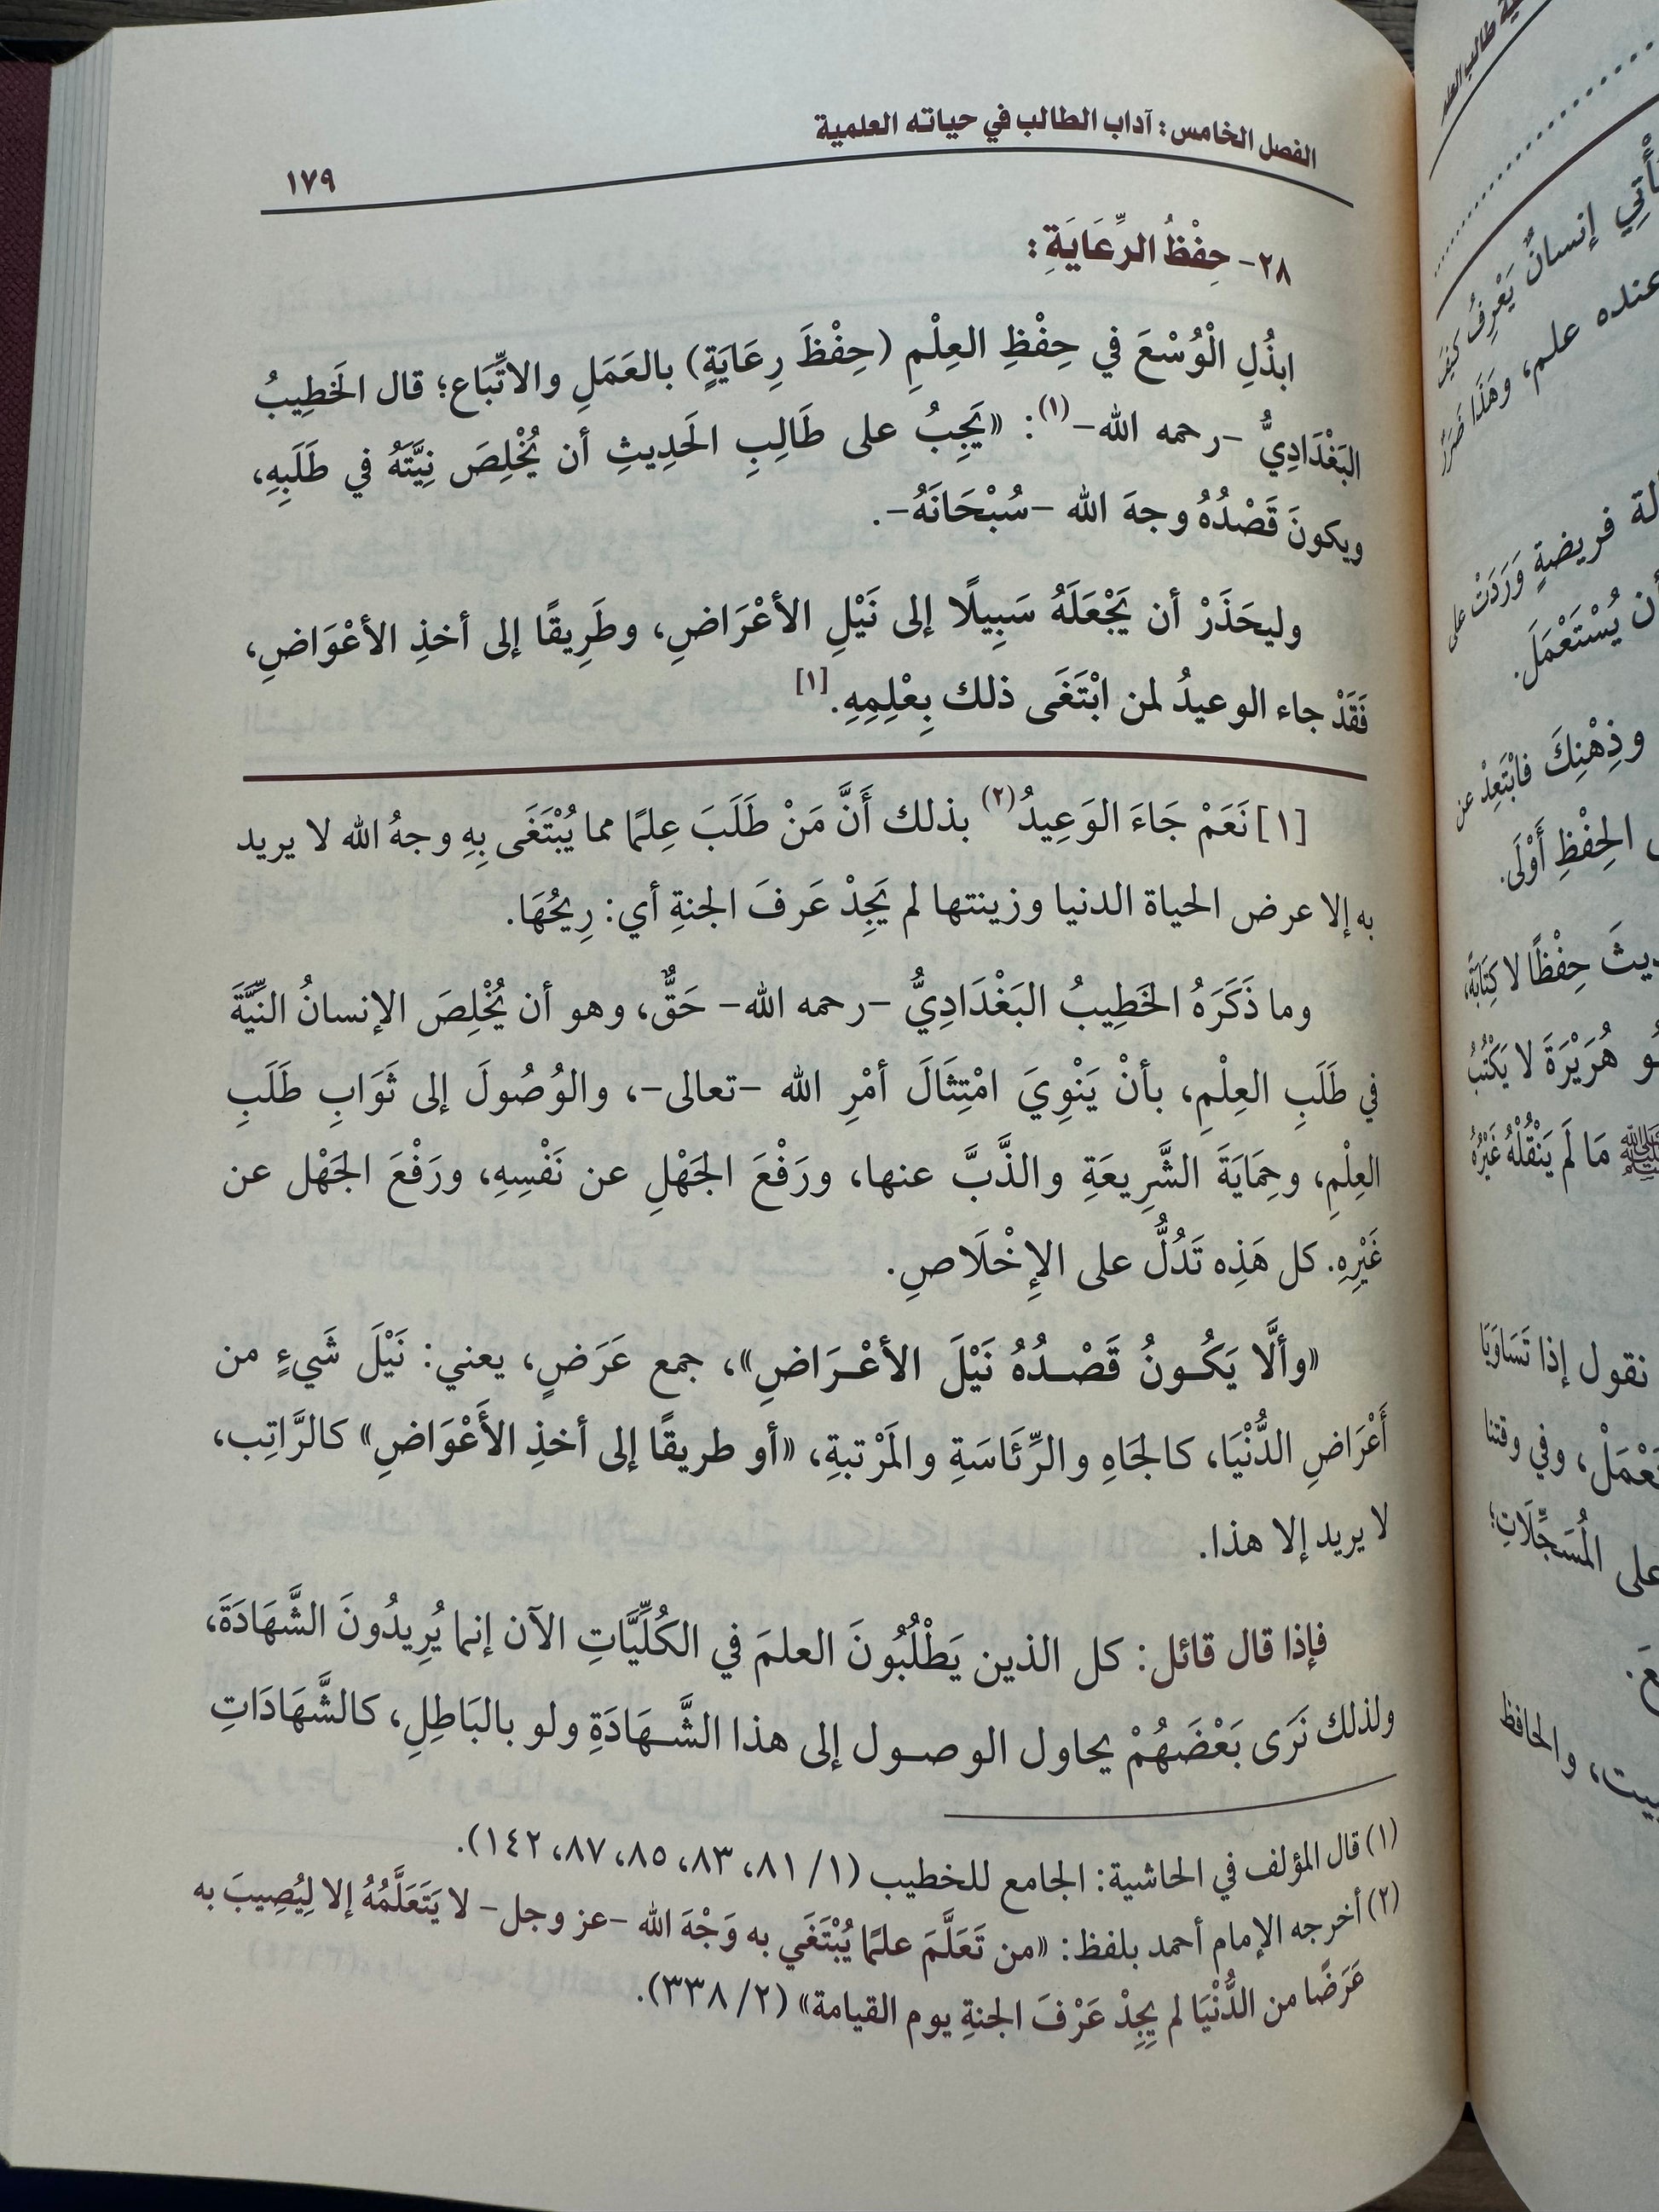 الفصل الخامس: آداب الطالب في حياته العلمية
١٧٩
٢٨- حِفْظُ الرِّعَايَةِ:
ابذُلِ الْوُسْعَ في حِفْظِ العِلْمِ (حِفْظَ رِعَايَةٍ) بالعَمَلِ والاتِّبَاع؛ قال الخَطِيبُ
البَغْدَادِيُّ -رحمه الله-(١): «يَجِبُ على طَالِبِ الحَدِيثِ أن يُخْلِصَ نِيَّتَهُ في طَلَبِهِ،
ويكونَ قَصْدُهُ وجهَ الله -سُبْحَانَهُ-.
وليحَذَرْ أن يَجْعَلَهُ سَبِيلًا إلى نَيْلِ الأعْرَاضِ، وطَرِيقًا إلى أخذِ الأعْوَاضِ،
فَقَدْ جاء الوعيدُ لمن ابْتَغَى ذلك بِعْلِمِهِ.[١]
[١] نَعَمْ جَاءَ الوَعِيدُ(٢) بذلك أَنَّ مَنْ طَلَبَ عِلمًا مما يُبْتَغَى بِهِ وجهُ الله لا يريد
به إلا عرض الحياة الدنيا وزينتها لم يَجِدْ عَرفَ الجنةِ أي: رِيحُهَا.
وما ذَكَرَهُ الخَطِيبُ البَغْدَادِيُّ -رحمه الله- حَقٌّ، وهو أن يُخْلِصَ الإنسانُ النِّيَّةَ
في طَلَبِ العِلْمِ، بأنْ يَنْوِيَ امْتِثَالَ أمْرِ الله -تعالى-، والوُصُولَ إلى ثَوَابِ طَلَبِ
العِلْمِ، وحِمَايَةَ الشَّرِيعَةِ والذَّبَّ عنها، ورَفْعَ الجَهْلِ عن نَفْسِهِ، ورَفْعَ الجَهْل عن
غَيْرِهِ. كل هَذِه تَدُلُّ على الإِخْلَاصِ.
«وألَّا يَكُونُ قَصْدُهُ نَيْلَ الأعْرَاضِ»، جمع عَرَضٍ، يعني: نَيْلَ شَيءٍ من
أَعْرَاضِ الدُّنْيَا، كالجَاهِ والرِّئَاسَةِ والمَرْتبةِ، «أو طريقًا إلى أخذِ الأَعْوَاضِ» كالرَّاتِب،
لا يريد إلا هذا.
فإذا قال قائل: كل الذين يَطْلُبُونَ العلمَ في الكُلِّيَّاتِ الآن إنما يُرِيدُونَ الشَّهَادَةَ،
ولذلك نَرَى بَعْضَهُمْ يحاول الوصول إلى هذا الشَّهَادَةِ ولو بالبَاطِلِ، كالشَّهَادَاتِ
(١) قال المؤلف في الحاشية: الجامع للخطيب (١/ ٨١، ٨٣، ٨٥، ٨٧، ١٤٢).
(٢) أخرجه الإمام أحمد بلفظ: «من تَعَلَّمَ علمًا يُبْتَغَي به وَجْهَ الله -عز وجل- لا يَتَعَلَّمُهُ إلا لِيُصِيبَ به
عَرَضًا من الدُّنْيَا لم يجِدْ عَرْفَ الجنةِ يوم القيامة» (٢/ ٣٣٨).
إنسانٌ يَعْرِفُ كيفَ
عنده علم، وهَذَا
فريضةٍ وَرَدَتْ على
أن يُسْتَعْمَلَ.
وذِهْنِكَ فابْتَعِدْ عن
الحِفْظِ أَوْلَى.
حِفْظًا لا كِتَابَةً،
هُرَيْرَةَ لا يَكْتُبُ
ﷺ مَا لَم يَنْقُلْهُ غَيْرُهُ
نقول إذا تَسَاوَيَا
وفي وقتنا
على المُسَجِّلَاتِ؛
والحافظ